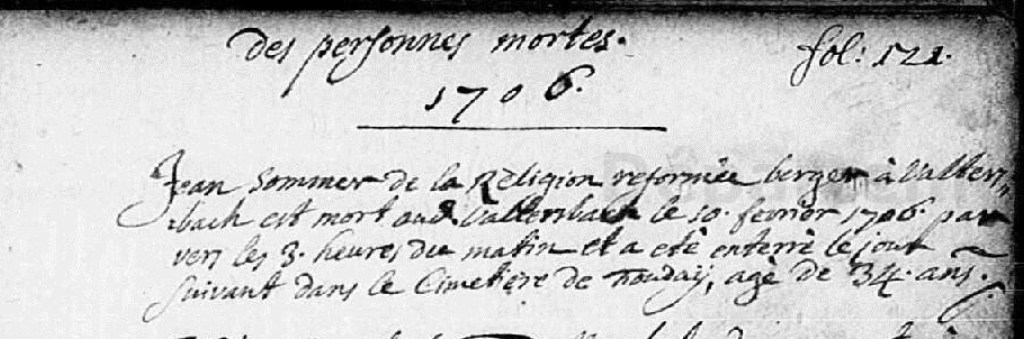 des personnes mortes.
fol: 121.
1706.
Jean Sommer de la Religion reformée berger à Walters
bach est mort aud. Waltersbach le 10. fevrier 1706.
vers les 3. heures du matin et a eté enterré le jour
suivant dans le Cimetiere de fouday, agé de 34. ans.